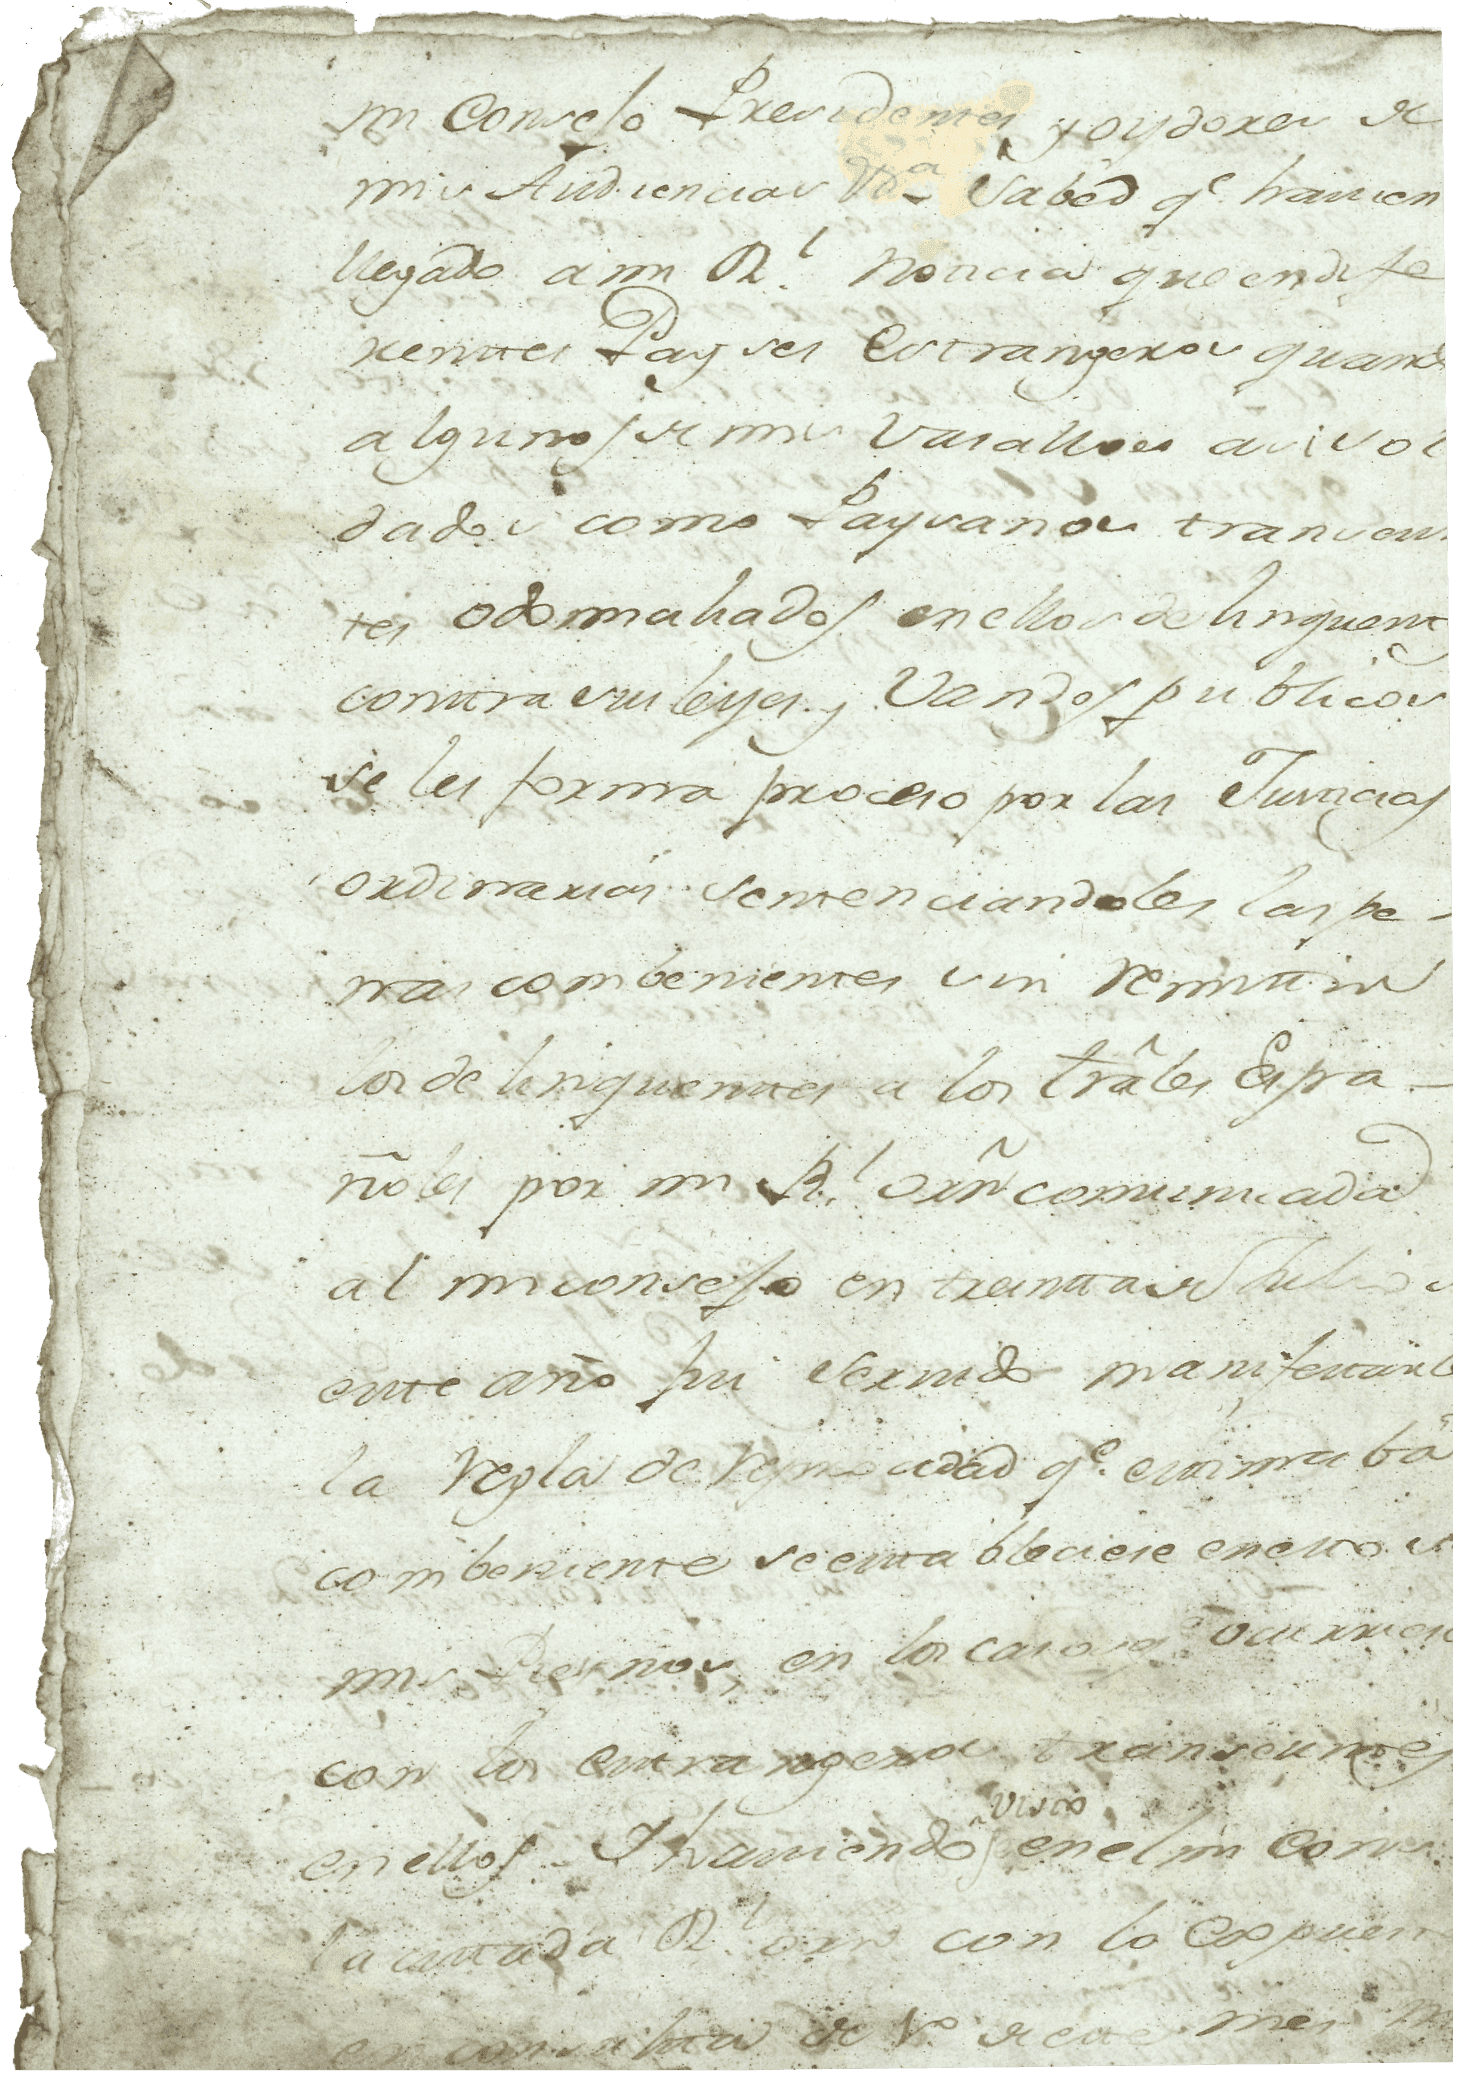 mi Consejo Presidentes, y oydores de
mis Audiencias &ra Sabed qe. havien
llegado a mi Rl. noticia que en dife
rentes Payses Estrangeros quand
algunos de mis Vasallos asi sol
dados como Paysanos transeun
tes o domiliados en ellos delinquent
contra sus leyes, y Vandos publicos
se les forma proceso por las Justicias
ordinarias sentenciandoles las pe-
nas combenientes sin remitir
los delinquentes a los trâles Espa-
ñoles por mi Rl. orñ comunicada
al mi consejo en treinta de Julio d
este año fui servido manifestarle
la regla de reciprocidad qe. estimaba
combeniente se estableciese en estos
mis Reynos, en los casos qe ocurries
con los estrangeros transeuntes
en ellos. Y haviendose visto en el mi Cons
la cittada Rl. orn con lo expuest
en consulta de 1o. de este mes